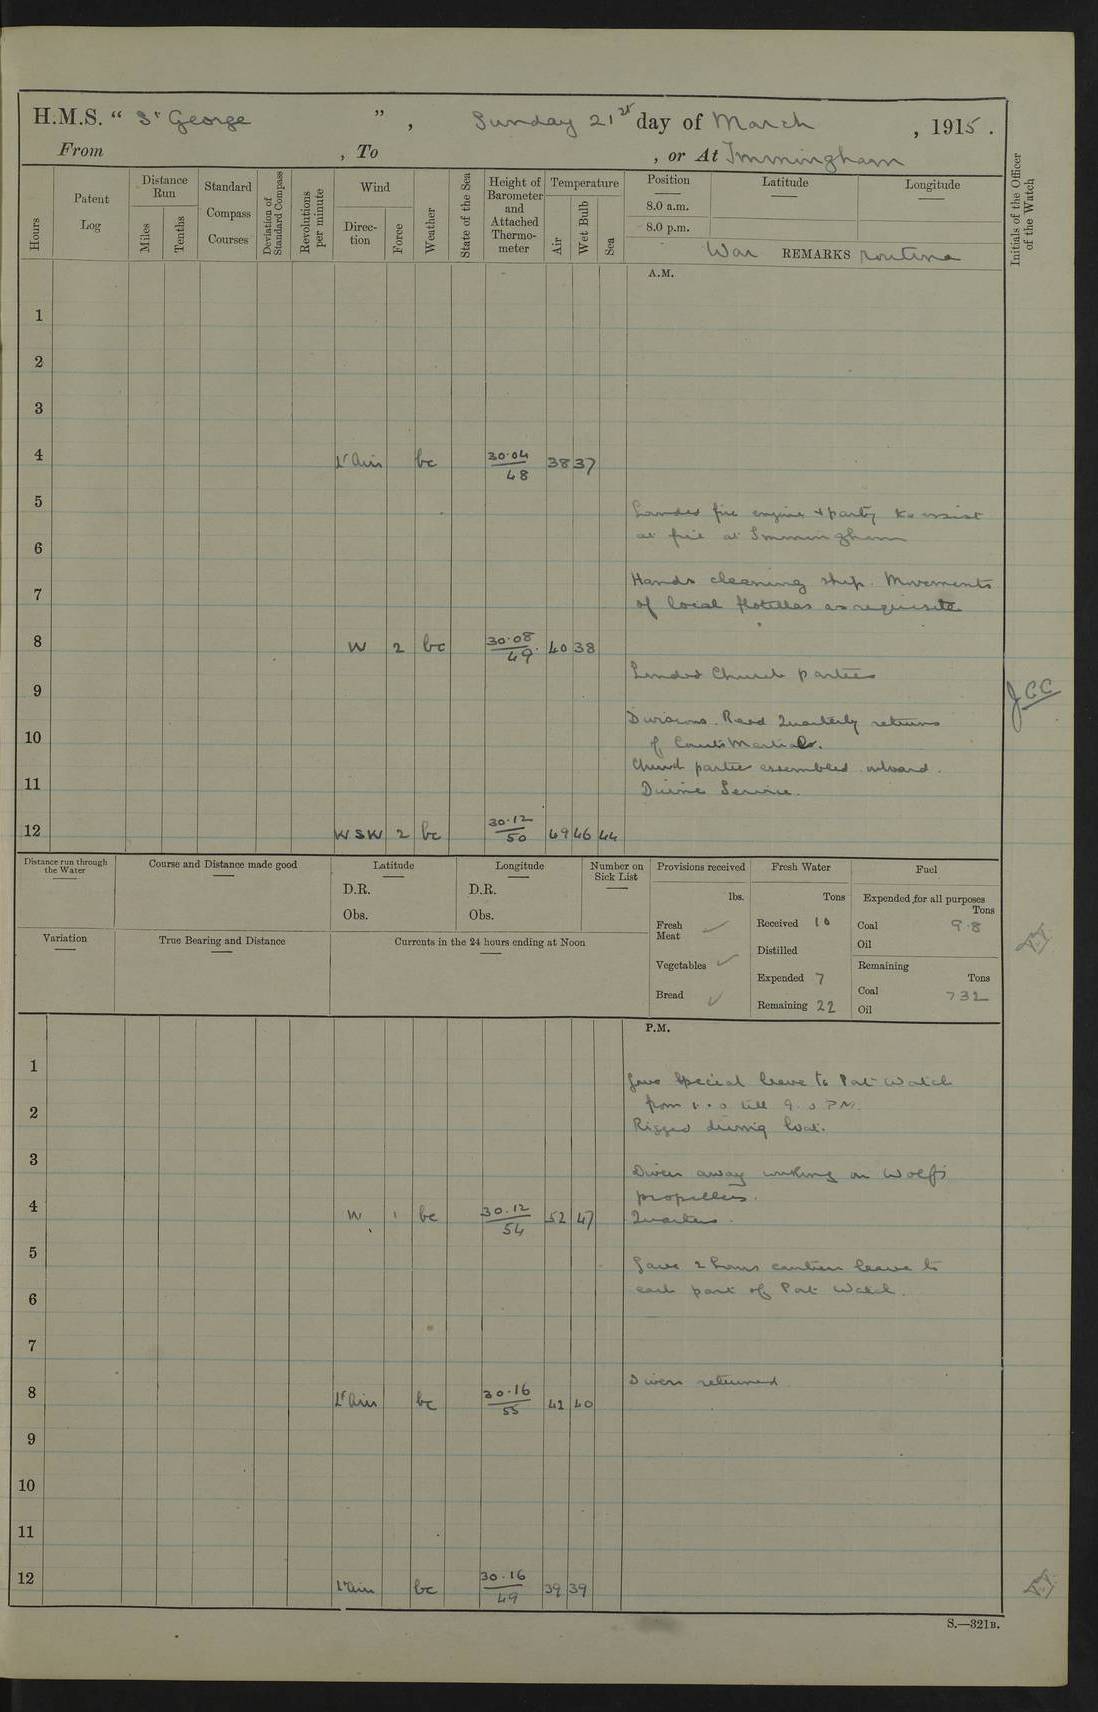 H.M.S. “ St George ” , Sunday 21st day of March , 1915 .
From , To , or At Immingham
Hours
Patent Log
Distance Run
Miles
Tenths
Standard Compass Courses
Deviation of Standard Compass
Revolutions per minute
Wind
Direction
Force
Weather
State of the Sea
Height of Barometer and Attached Thermometer
Temperature
Air
Wet Bulb
Sea
Position
Latitude
Longitude
8.0 a.m.
8.0 p.m.
War REMARKS routine
Initials of the Officer of the Watch
A.M.
1
2
3
4 Lt Airs bc 30.04 48 38 37
5 Landed fire engine & party to assist
at fire at Immingham
6
Hands cleaning ship. Movements
7 of local flotillas as requisite
8 W 2 bc 30.08 49 40 38
Landed Church parties
9 JCC
Divisions. Read Quarterly returns
10 of Courts Martial.
Church parties assembled onboard.
11 Divine Service.
12 WSW 2 bc 30.12 50 49 46 44
Distance run through the Water
Course and Distance made good
Latitude
D.R.
Obs.
Longitude
D.R.
Obs.
Number on Sick List
Provisions received
lbs.
Fresh Meat ✓
Vegetables ✓
Bread ✓
Fresh Water
Tons
Received 10
Distilled
Expended 7
Remaining 22
Fuel
Expended for all purposes
Tons
Coal 9.8
Oil
Remaining
Tons
Coal 732
Oil
Variation
True Bearing and Distance
Currents in the 24 hours ending at Noon
P.M.
1
Gave special leave to Port Watch
2 from 1.0 till 9.0 PM.
Rigged diving boat.
3
Divers away working on Wolf's
propellers.
4 W 1 bc 30.12 54 52 47 Quarters.
5 Gave 2 hours canteen leave to
each part of Port Watch.
6
7
8 Lt Airs bc 30.16 55 42 40 Divers returned
9
10
11
12 Lt Airs bc 30.16 49 39 39
S.—321B.